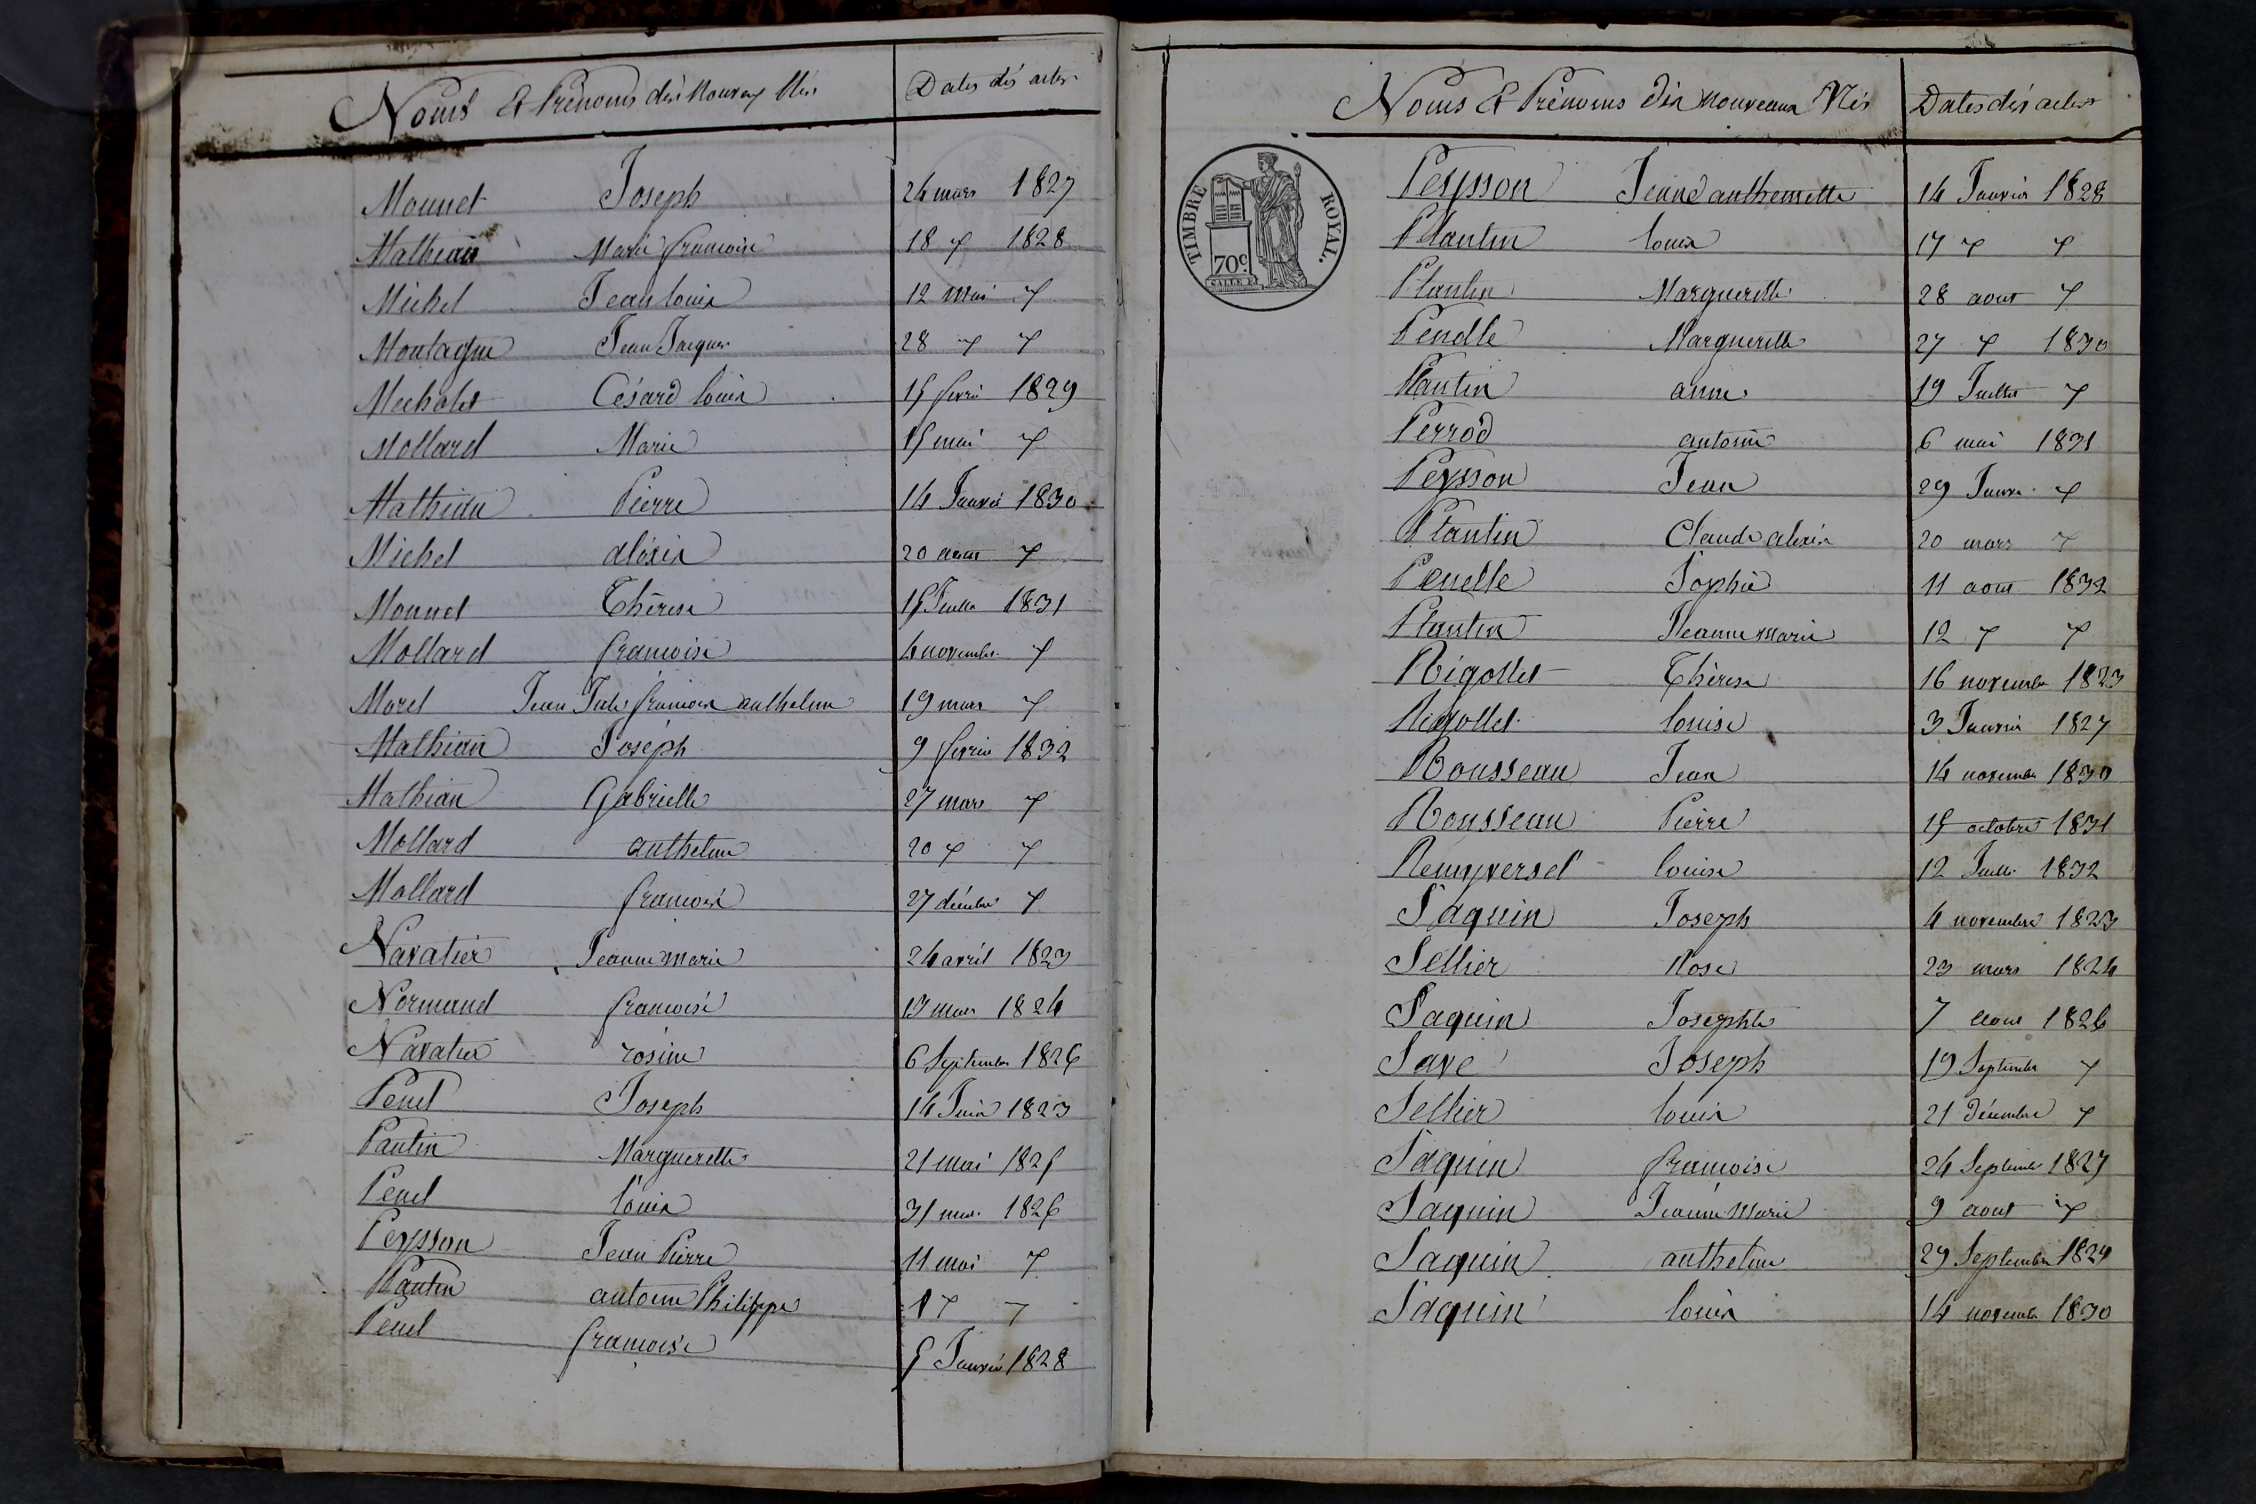 Noms Et Prénoms des Nouveaux Nés Dates des actes
Monnet Joseph 24 mars 1827
Mathian Marie françoise 18 " 1828
Michel Jean louis 12 mai "
Montagne Jean Jacques 28 " "
Mecholet Césard louis 15 fevrier 1829
Mollard Marie 15 mai "
Mathian Pierre 14 Janvier 1830
Michel aléxis 20 aout "
Monnet Thérese 15 Juillet 1831
Mollard françoise 4 novembre "
Morel Jean Jules françois anthelme 19 mars "
Mathian Joséph 9 fevrier 1832
Mathian Gabrielle 27 mars "
Mollard anthelme 20 " "
Mollard françoise 27 décembre "
Navatier Jeanne Marie 24 avril 1823
Normand françoise 13 mars 1824
Navatier rosine 6 Septembre 1826
Penel Joseph 14 Juin 1823
Pantin Marguerette 21 mai 1825
Penel louis 31 mai 1826
Peysson Jean Pierre 11 mai "
Plantin antoine Philippe 1 " "
Penel françoise 5 Janvier 1828
Noms Et Prénoms des Nouveaux Nés Dates des actes
TIMBRE ROYAL.
70c.
Peysson Jeanne anthemette 14 Janvier 1828
Plantin louis 17 " "
Plantin Marguerette 28 aout "
Penelle Marguerette 27 " 1830
Plantin anne 19 Juillet "
Perrod antoine 6 mai 1831
Peysson Jean 29 Janvr. "
Plantin Claude alexis 20 mars "
Penelle Sophie 11 aout 1832
Plantin Jeanne Marie 12 " "
Rigollet Thérese 16 novembre 1823
Rigollet louise 3 Janvier 1827
Rousseau Jean 14 novembre 1830
Rousseau Pierre 15 octobre 1831
Remyversel louise 12 Juillet 1832
Saquin Joseph 4 novembre 1823
Sellier Rose 23 mars 1824
Saquin Josephte 7 aout 1826
Save Joseph 19 Septembre "
Sellier louis 21 décembre "
Saquin françoise 24 Septembre 1827
Saquin Jeanne Marie 9 aout "
Saquin anthelme 29 Septembre 1829
Saquin louis 14 novembre 1830